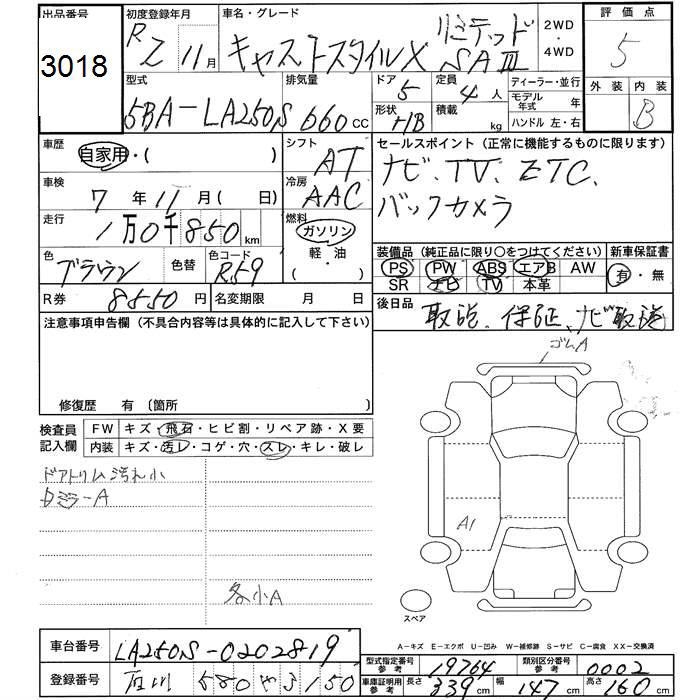 出品番号 3018
初度登録年月 R2 11月
車名・グレード キャストスタイルX リミテッド SAⅢ
2WD・4WD
評価点 5
外装 内装 B
型式 5BA-LA250S
排気量 660cc
ドア 5
形状 HB
定員 4人
積載 kg
ディーラー・並行
モデル年式 年
ハンドル 左・右
車歴 自家用・( )
シフト AT
セールスポイント(正常に機能するものに限ります)
ナビ、TV、ETC、
バックカメラ
車検 7年11月(日)
冷房 AAC
走行 1万0千850km
燃料 ガソリン・軽・油( )
色 ブラウン 色替 色コード R59
装備品(純正品に限り○をつけてください)
PS PW ABS エアB AW
SR ナビ TV 本革
新車保証書 有・無
R券 8550円 名変期限 月 日
後日品 取説、保証、ナビ取説
注意事項申告欄(不具合内容等は具体的に記入して下さい)
修復歴 有(箇所 )
ゴムA
検査員記入欄
FW キズ・飛石・ヒビ割・リペア跡・X要
内装 キズ・汚レ・コゲ・穴・スレ・キレ・破レ
ドアトリム汚れ小
ミラーA
A1
各小A
スペア
A-キズ E-エクボ U-凹み W-補修跡 S-サビ C-腐食 XX-交換済
車台番号 LA250S-0202819
登録番号 石川 580 や 3150
型式指定番号参考 19764
類別区分番号参考 0002
車庫証明用参考 長さ 339cm 幅 147cm 高さ 160cm